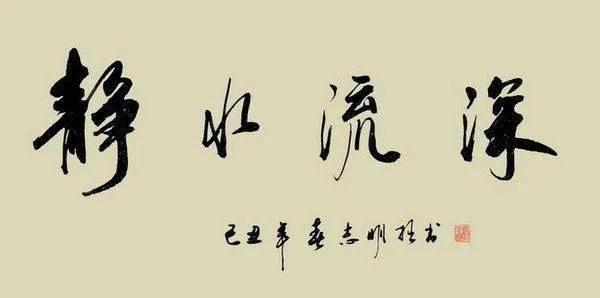 静水流深
己丑年春志明拙书